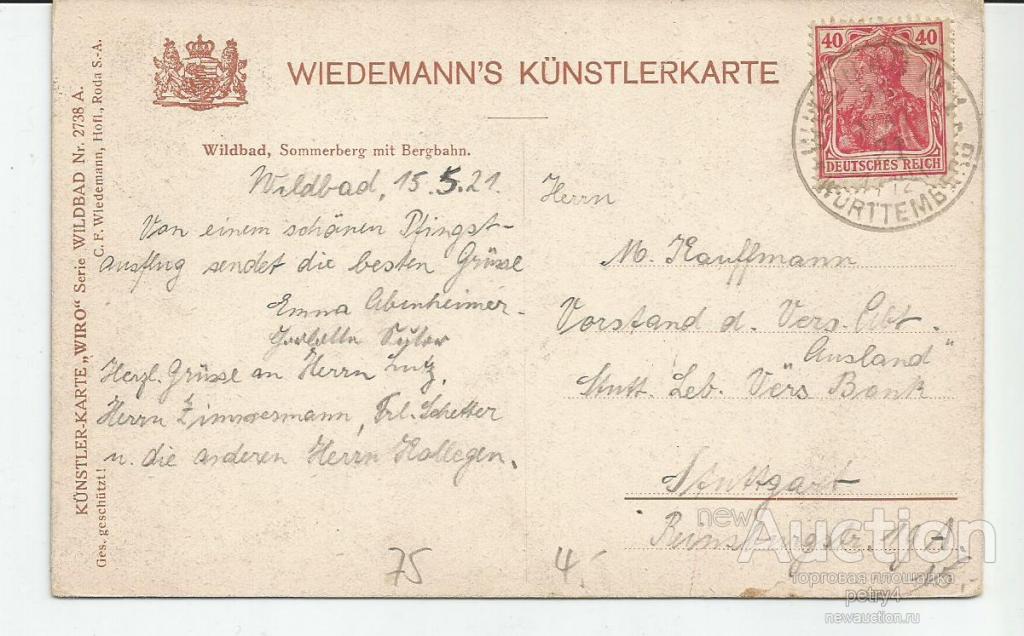 WIEDEMANN'S KÜNSTLERKARTE
40 40
DEUTSCHES REICH
WÜRTTEMB.
Wildbad, Sommerberg mit Bergbahn.
Wildbad, 15.5.21
Von einem schönen Pfingst-
ausflug sendet die besten Grüsse
Emma Abenheimer
Herzl. Grüsse an Herrn Lutz,
Herrn Zimmermann, Frl. Schetter
u. die anderen Herrn Kollegen.
Herrn
M. Kauffmann
Vorstand d. Vers. Abt.
"Ausland"
Stutt. Leb. Vers Bank
Stuttgart
Reinsburgstr.
75
4.-
15.-
KÜNSTLER-KARTE „WIRO" Serie WILDBAD Nr. 2738 A.
Ges. geschützt! C. F. Wiedemann, Hofl., Roda S.-A.
newAuction
торговая площадка
petry4
newauction.ru